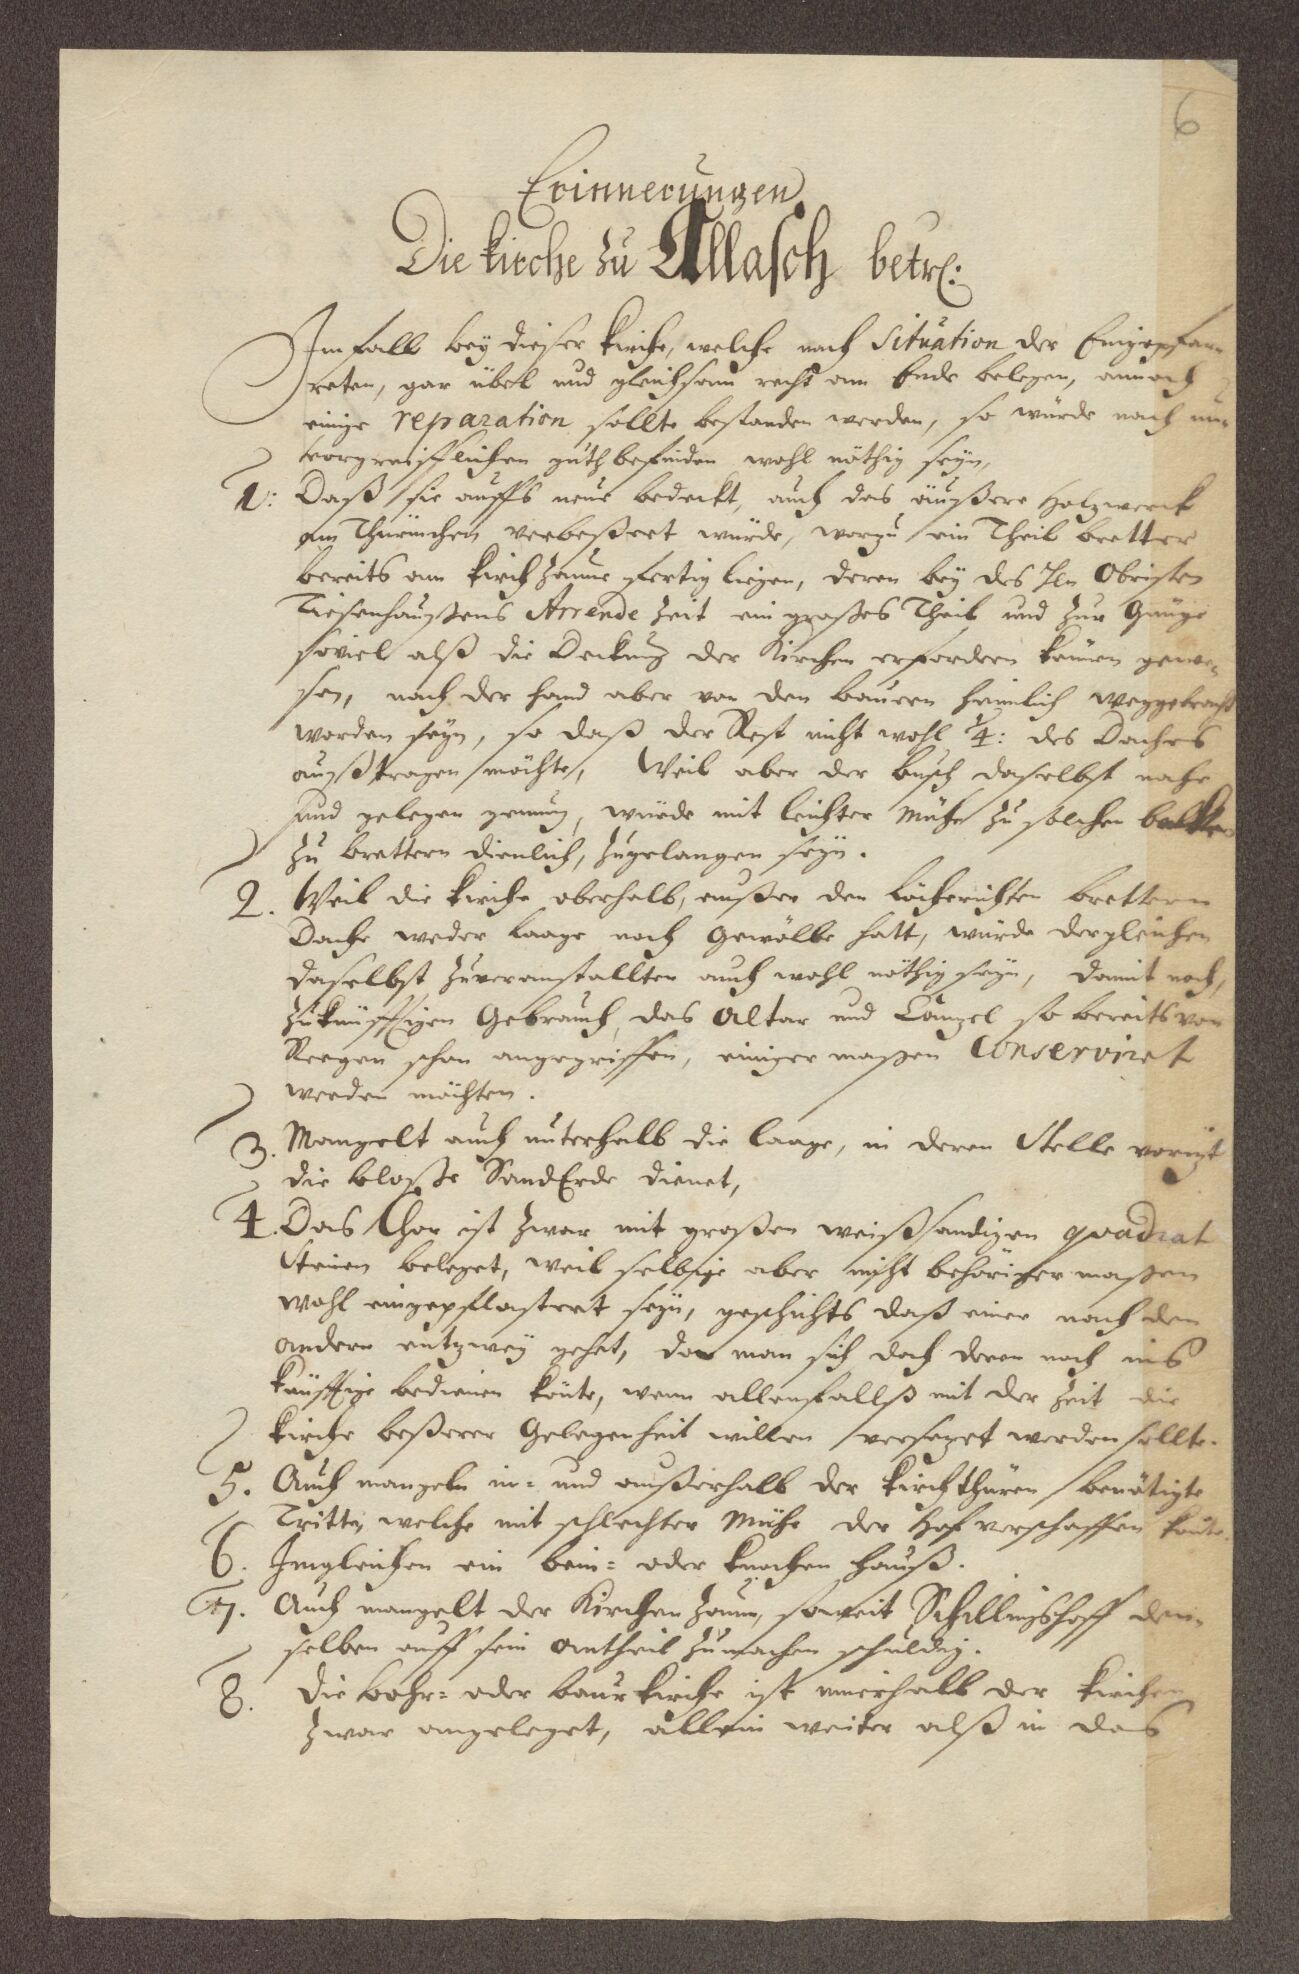 6
Erinnerungen
Die Kirche zu Allasch betrf:
Im fall bey dieser Kirche, welche nach Situation der Eingepfarr-
reten, gar übel und gleichsam recht am Ende belegen, annoch
einige reparation sollte bestanden werden, so würde nach un-
vorgreifflichen guthbefinden wohl nöthig seyn,
1: Daß sie auffs neue bedeckt, auch das äußere Holzwerck
am Thürmchen verbeßert würde, worzu ein Theil bretter
bereits am Kirch Zaune fertig liegen, deren bey des Hn Obristen
Tiesenhaußens Arrende Zeit ein großes Theil und zur Gnüge
soviel alß die Deckung der Kirchen erfordern können gewe-
sen, nach der Hand aber von den bauren heimlich weggebracht
worden seyn, so daß der Rest nicht wohl 1/4: des Daches
außtragen möchte, Weil aber der busch daselbst nahe
und gelegen genung, würde mit leichter Mühe zu solchen balken
zu brettern dienlich, zugelangen seyn.
2. Weil die Kirche oberhalb, außer den löcherichten brettern
Dache weder Laage noch Gewölbe hatt, würde dergleichen
daselbst zuveranstallten auch wohl nöthig seyn, damit noch,
zukünfftigen Gebrauch, das Altar und Cantzel so bereits von
Reegen schon angegriffen, einiger maßen Conserviret
werden möchten.
3. Mangelt auch unterhalb die laage, in deren Stelle voritzt
die bloße SandErde dienet,
4. Das Chor ist zwar mit großen weißsandigen quadrat
Steinen beleget, weil selbige aber nicht behöriger maßen
wohl eingepflastert seyn, geschichts daß einer nach den
andern entzwey gehet, da man sich doch deren noch ins
künfftige bedienen könte, wenn allenfallß mit der Zeit die
Kirche beßerer Gelegenheit willen versezet werden sollte.
5. Auch mangeln in- und außerhalb der Kirchthüren benötigte
Tritte, welche mit schlechter Mühe der Hof verschaffen könte.
6. Imgleichen ein bein- oder Knochen hauß.
7. Auch mangelt der Kirchen Zaun, soweit Schillingshoff den-
selben auff sein antheil zumachen schuldig.
8. Die Bahr- oder baurkirche ist innerhalb der Kirchen
zwar angeleget, allein weiter alß in das